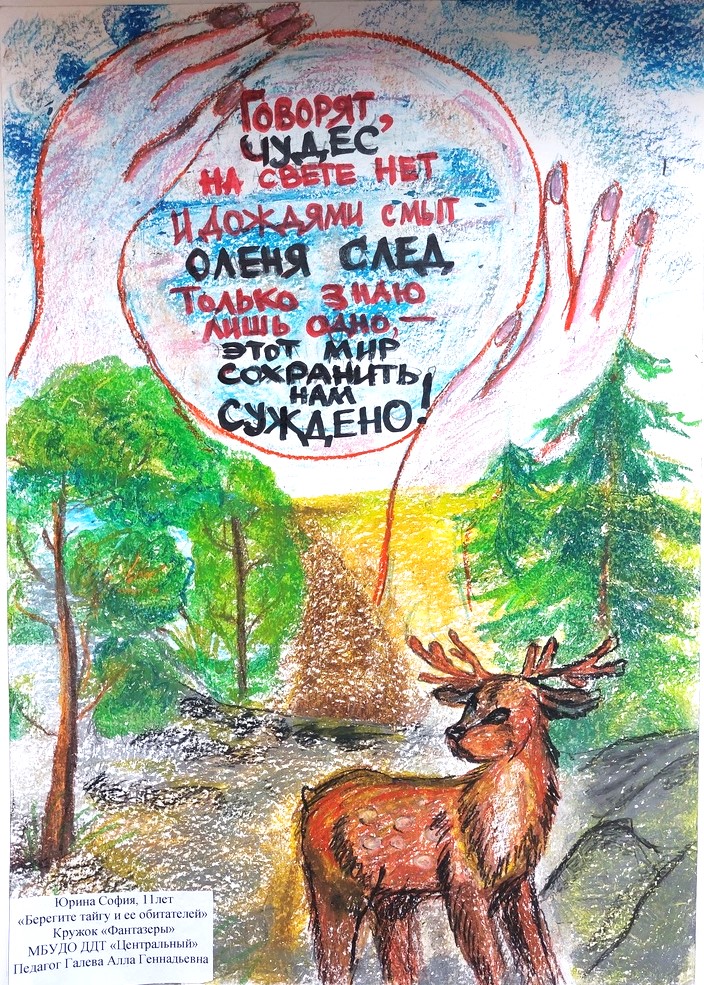 Говорят,
чудес
на свете нет
и дождями смыт
оленя след
Только знаю
лишь одно,—
этот мир
сохранить
нам
суждено!
Юрина София, 11лет
«Берегите тайгу и ее обитателей»
Кружок «Фантазеры»
МБУДО ДДТ «Центральный»
Педагог Галева Алла Геннадьевна